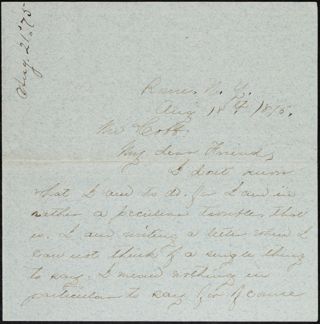 Aug. 21st 75
Rome, N. Y.
Aug 18th 1875.
My dear Friend,
I don't know
what I am to do. for I am in
rather a peculiar trouble, that
is. I am writing a letter when I
can not think of a single thing
to say. I mean nothing in
particular to say for of course